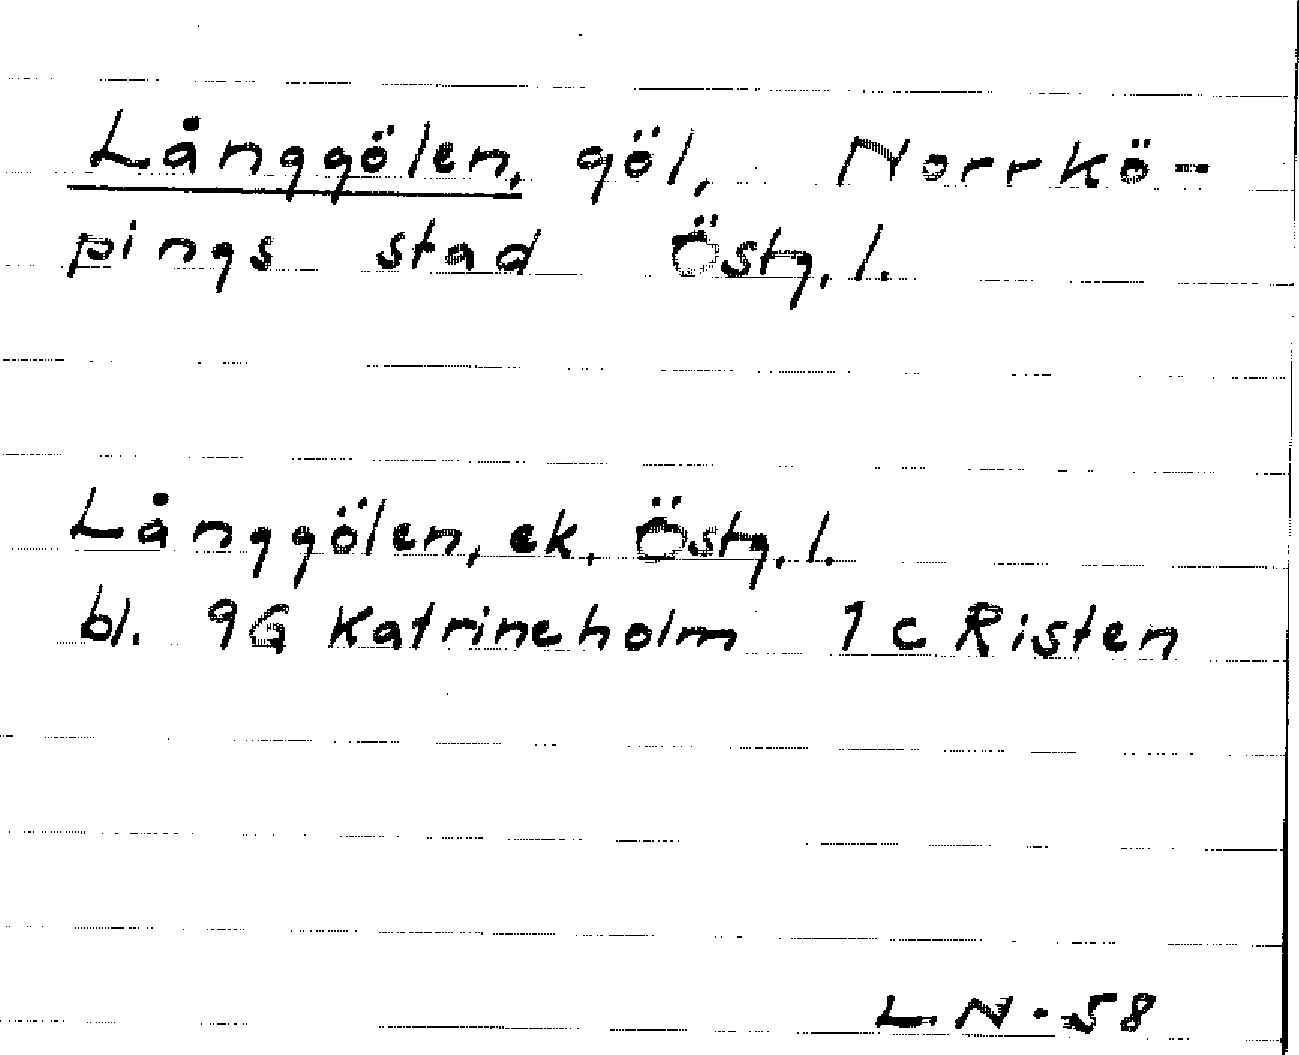 Långgölen, göl, Norrkö-
pings stad Östg. l.
Långgölen, ek. Östg. l.
bl. 9G Katrineholm 1 c Risten
L. N - 58